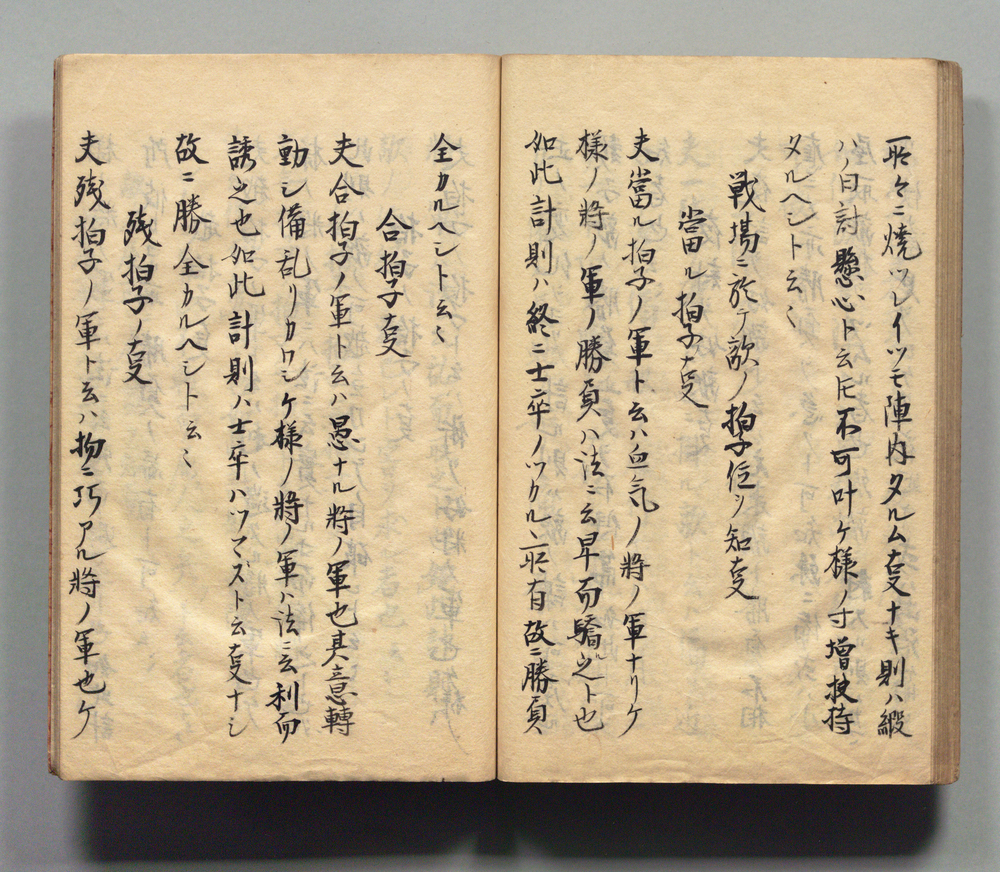 所々ニ焼ツレイツモ陣内タルム叓ナキ則ハ緞
ハノ日討懸心ト云𪜈不可叶ケ様ノ寸増扶持
タルヘシト云〻
戦場ニ於テ敵ノ拍子位ヲ知叓
當ル拍子叓
夫當ル拍子ノ軍ト云ハ血気ノ將ノ軍ナリケ
様ノ將ノ軍ノ勝負ハ法ニ云卑而驕之ト也
如此計則ハ終ニ士卒ノツカルヽ所有故ニ勝負
全カルヘシト云〻
合拍子叓
夫合拍子ノ軍ト云ハ愚ナル將ノ軍也其意轉
動シ備乱リカワシケ様ノ將ノ軍ハ法ニ云利而
誘之也如此計則ハ士卒ハツマズト云叓ナシ
故ニ勝全カルヘシト云〻
残拍子ノ叓
夫残拍子ノ軍ト云ハ物ニ巧アル將ノ軍也ケ